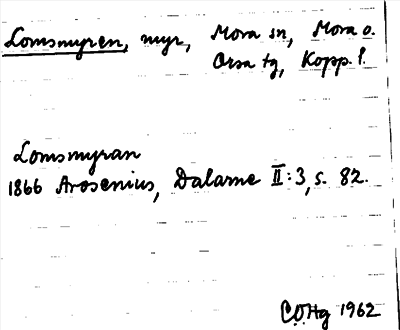 Lomsmyren, myr, Mora sn, Mora o.
Orsa tg, Kopp. l.
Lomsmyran
1866 Arosenius, Dalarne II:3, s. 82.
COHg 1962